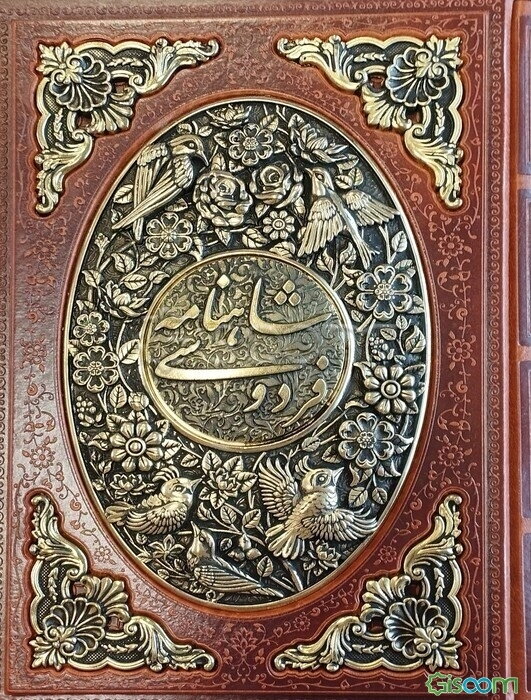 شاهنامه
فردوسی
Gisoom